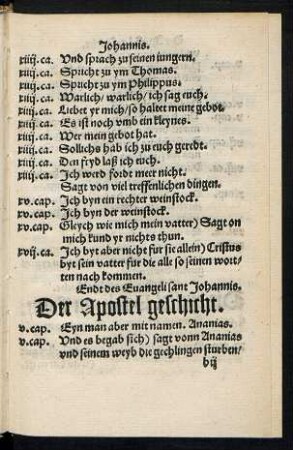 Johannis.
xiiij.ca. Vnd sprach zu seinen iungern.
xiiij.ca. Spricht zu ym Thomas.
xiiij.ca. Spricht zu ym Philippus.
xiiij.ca. Warlich/ warlich/ ich sag euch.
xiiij.ca. Liebet yr mich/ so haltet meine gebot.
xiiij.ca. Es ist noch vmb ein kleynes.
xiiij.ca. Wer mein gebot hat.
xiiij.ca. Sollichs hab ich zu euch geredt.
xiiij.ca. Den fryd laß ich euch.
xiiij.ca. Ich werd fordt meer nicht.
Sagt von viel treffenlichen dingen.
xv.cap. Ich byn ein rechter weinstock.
xv.cap. Ich byn der weinstock.
xv.cap. Gleych wie mich mein vatter) Sagt on
mich kund yr nichts thun.
xvij.ca. Ich byt aber nicht fur sie allein) Cristus
byt sein vatter für die alle so seinen wort/
ten nach kommen.
Endt des Euangeli sant Johannis.
Der Apostel geschicht.
v.cap. Eyn man aber mit namen. Ananias.
v.cap. Vnd es begab sich) sagt vonn Ananias
vnd seinem weyb die gechlingen sturben/
bij